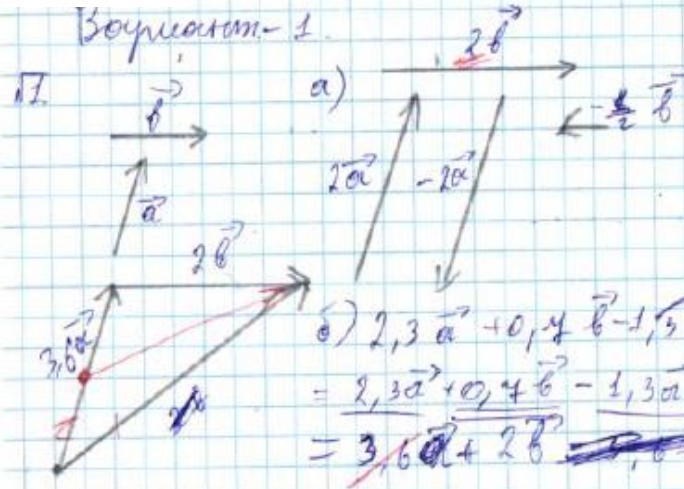 Вариант-1.
№1.
b⃗
a⃗
а)
2b⃗
2a⃗
-2a⃗
-½ b⃗
2b⃗
3,6a⃗
б) 2,3 a⃗ +0,7 b⃗ -1,3
= 2,3a⃗ +0,7b⃗ - 1,3a⃗
= 3,6a⃗ + 2b⃗